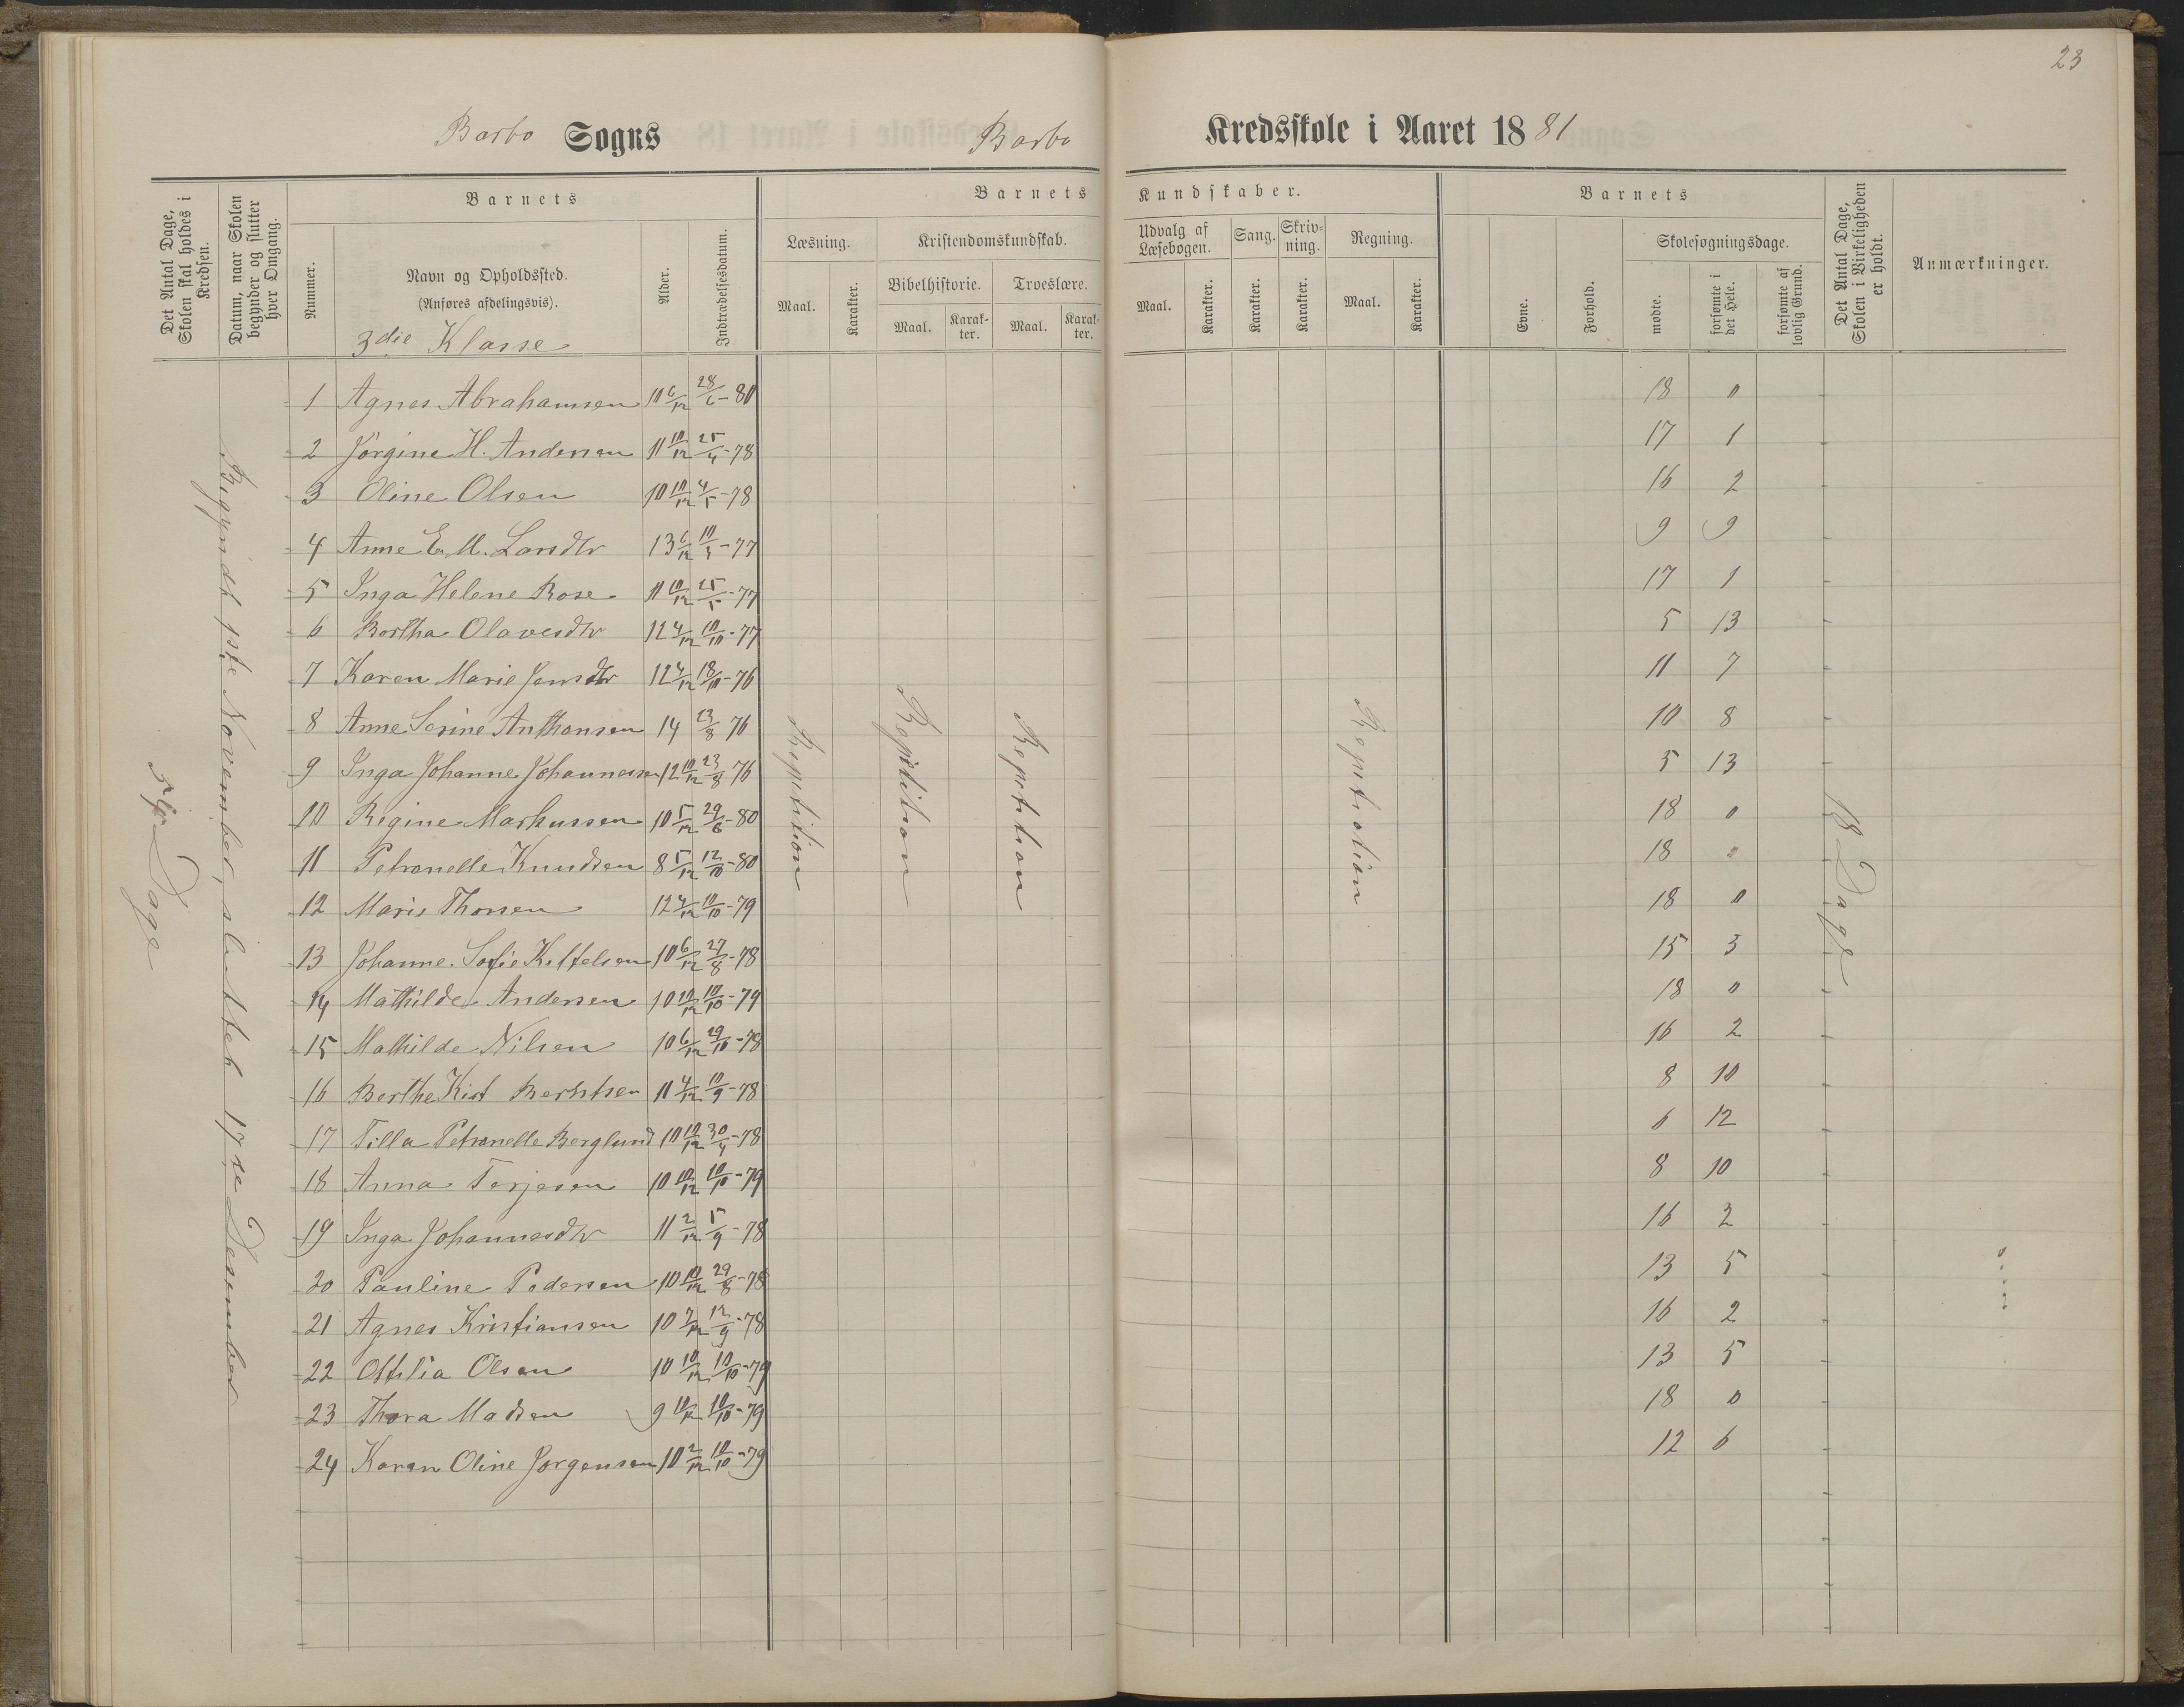 23
Barbo Sogns Barbo Kredsskole i Aaret 1881
Det Antal Dage, Skolen skal holdes i Kredsen.
Datum, naar Skolen begynder og slutter hver Omgang.
Barnets
Nummer.
Navn og Opholdssted.
(Anføres afdelingsvis).
3die Klasse
Alder.
Indtrædelsesdatum.
Barnets Kundskaber.
Læsning.
Maal.
Karakter.
Kristendomskundskab.
Bibelhistorie.
Maal.
Karakter.
Troeslære.
Maal.
Karakter.
Udvalg af Læsebogen.
Maal.
Karakter.
Sang.
Karakter.
Skrivning.
Karakter.
Regning.
Maal.
Karakter.
Barnets
Evne.
Forhold.
Skolesøgningsdage.
mødte.
forsømte i det Hele.
forsømte af lovlig Grund.
Det Antal Dage, Skolen i Virkeligheden er holdt.
Anmærkninger.
1 Agnes Abrahamsen 10 6/12 28/6-80 18 0
2 Jörgine H. Andersen 11 10/12 25/4-78 17 1
3 Oline Olsen 10 10/12 4/5-78 16 2
4 Anne E. M. Larsdtr 13 6/12 10/3-77 9 9
5 Inga Helene Rose 11 10/12 25/5-77 17 1
6 Bertha Olavesdtr 12 4/12 10/10-77 5 13
7 Karen Marie Jensdtr 12 4/12 18/10-76 11 7
8 Anne Serine Anthonsen 14 23/8 76 10 8
9 Inga Johanne Johannessen 12 10/12 23/8 76 5 13
10 Regine Markussen 10 5/12 29/6-80 18 0
11 Petronelle Knudsen 8 5/12 12/10-80 18 "
12 Maris Thorsen 12 4/12 10/10-79 18 0
13 Johanne Sofie Kittelsen 10 6/12 27/8-78 15 3
14 Mathilde Andersen 10 10/12 10/10-79 18 0
15 Mathilde Nilsen 10 6/12 29/10-78 16 2
16 Berthe Kist Berntsen 11 4/12 10/9-78 8 10
17 Tilla Petronelle Berglund 10 10/12 30/4-78 6 12
18 Anna Terjesen 10 10/12 10/10-79 8 10
19 Inga Johannesdtr 11 2/12 5/9-78 16 2
20 Pauline Pedersen 10 10/12 29/8-78 13 5
21 Agnes Kristiansen 10 7/12 12/9-78 16 2
22 Ottilia Olsen 10 10/12 10/10-79 13 5
23 Thora Madsen 9 10/12 10/10-79 18 0
24 Karen Oline Jorgensen 10 2/12 10/10-79 12 6
Dage
Begyndt 1ste November, sluttet 17de Desember
Repetition
Repetition
Repetition
Repetition
18 Dage